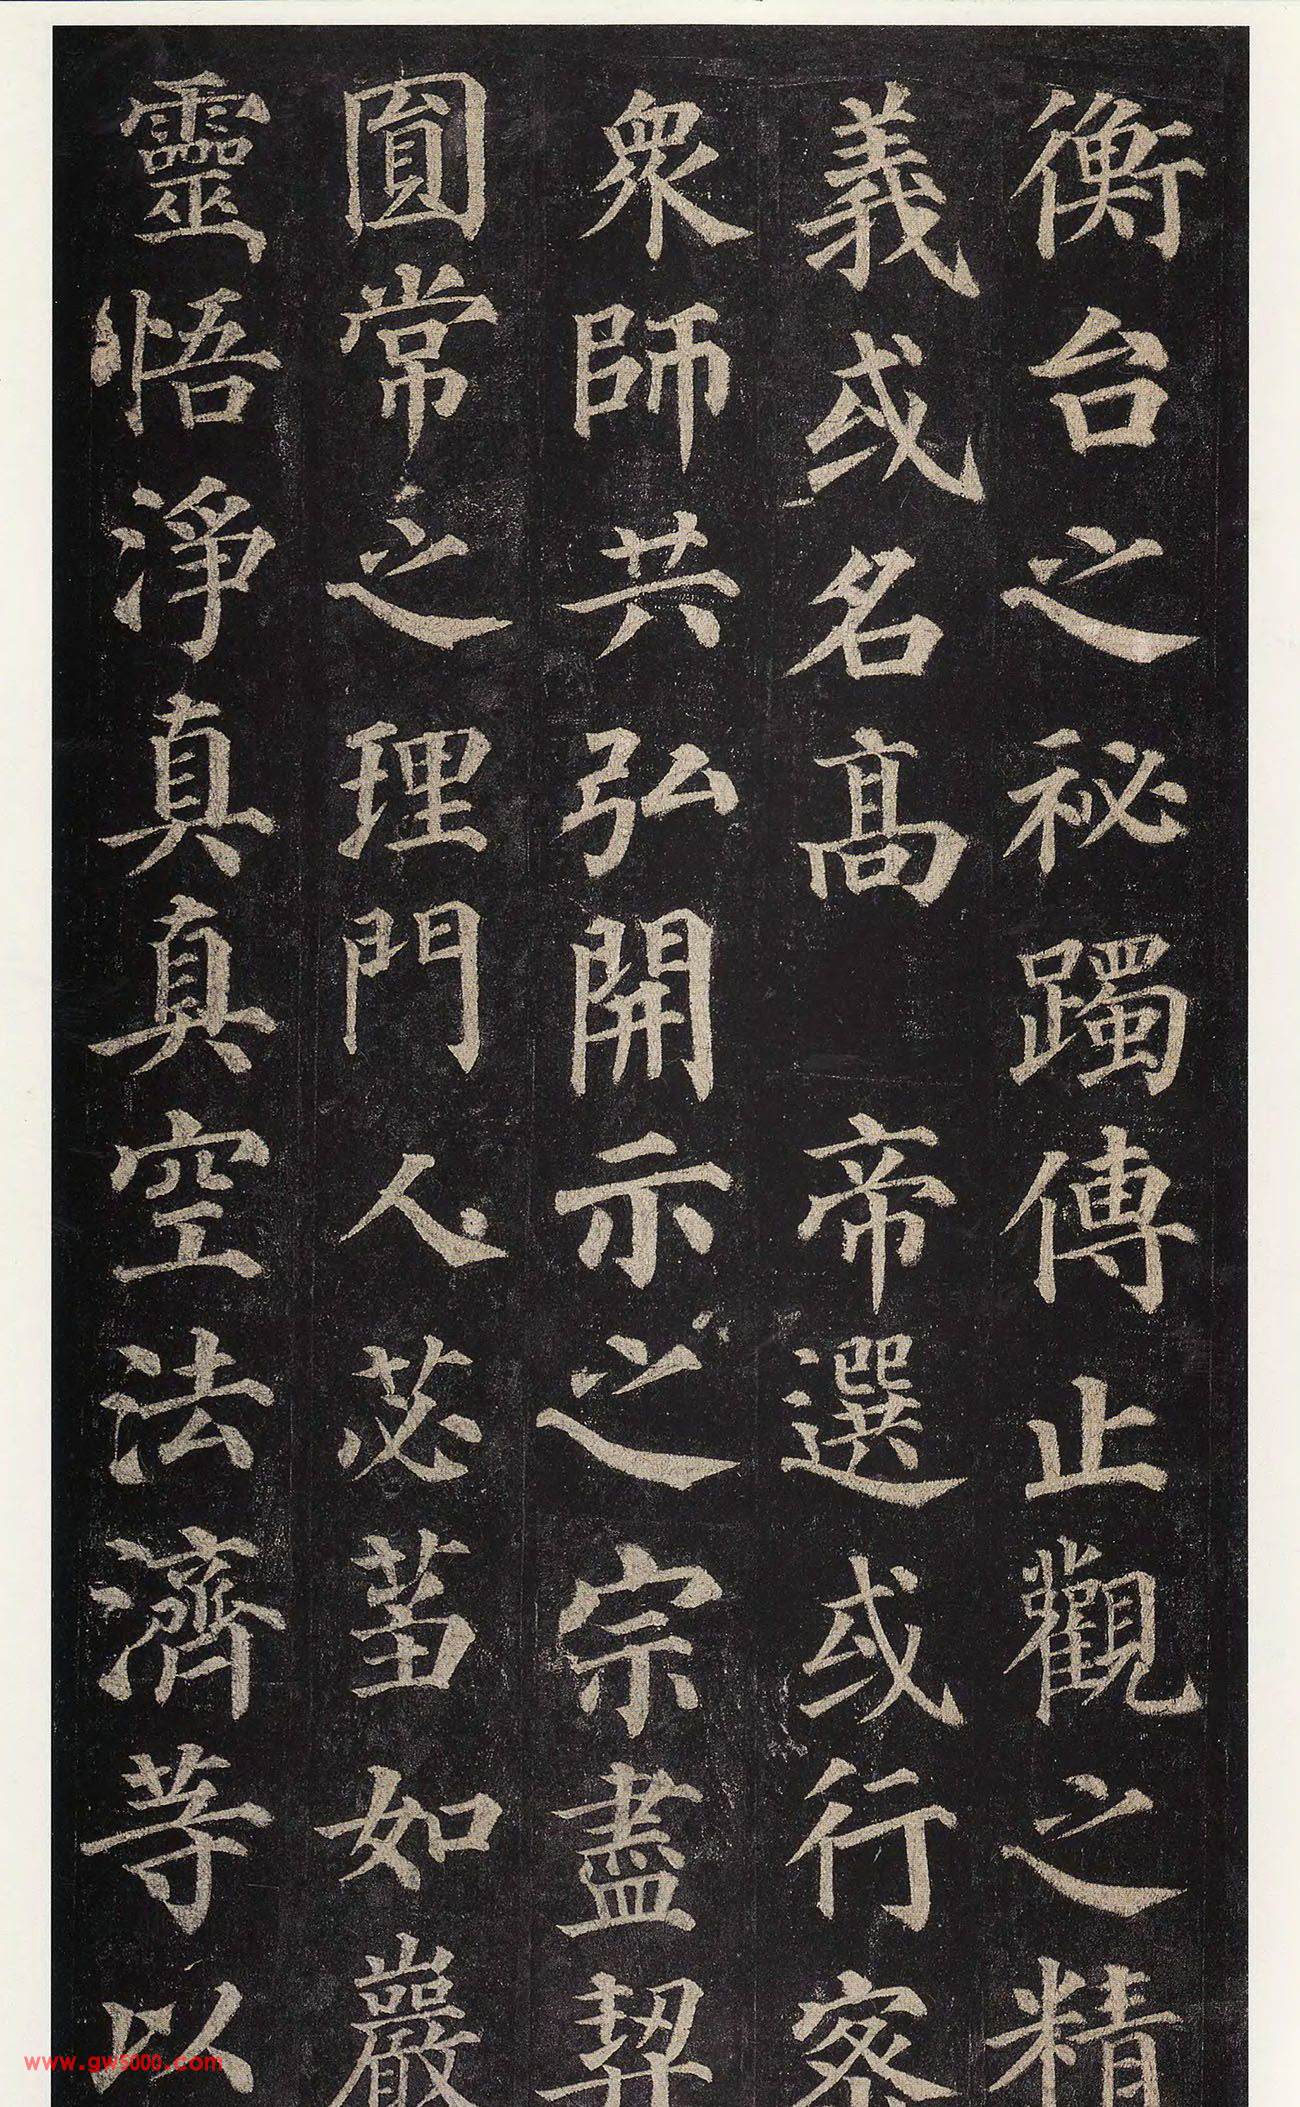 衡台之秘躅傳止觀之精
義或名高 帝選或行密
衆師共弘開示之宗盡契
圓常之理門人苾芻如巖
靈悟淨真真空法濟等以
www.gw5000.com